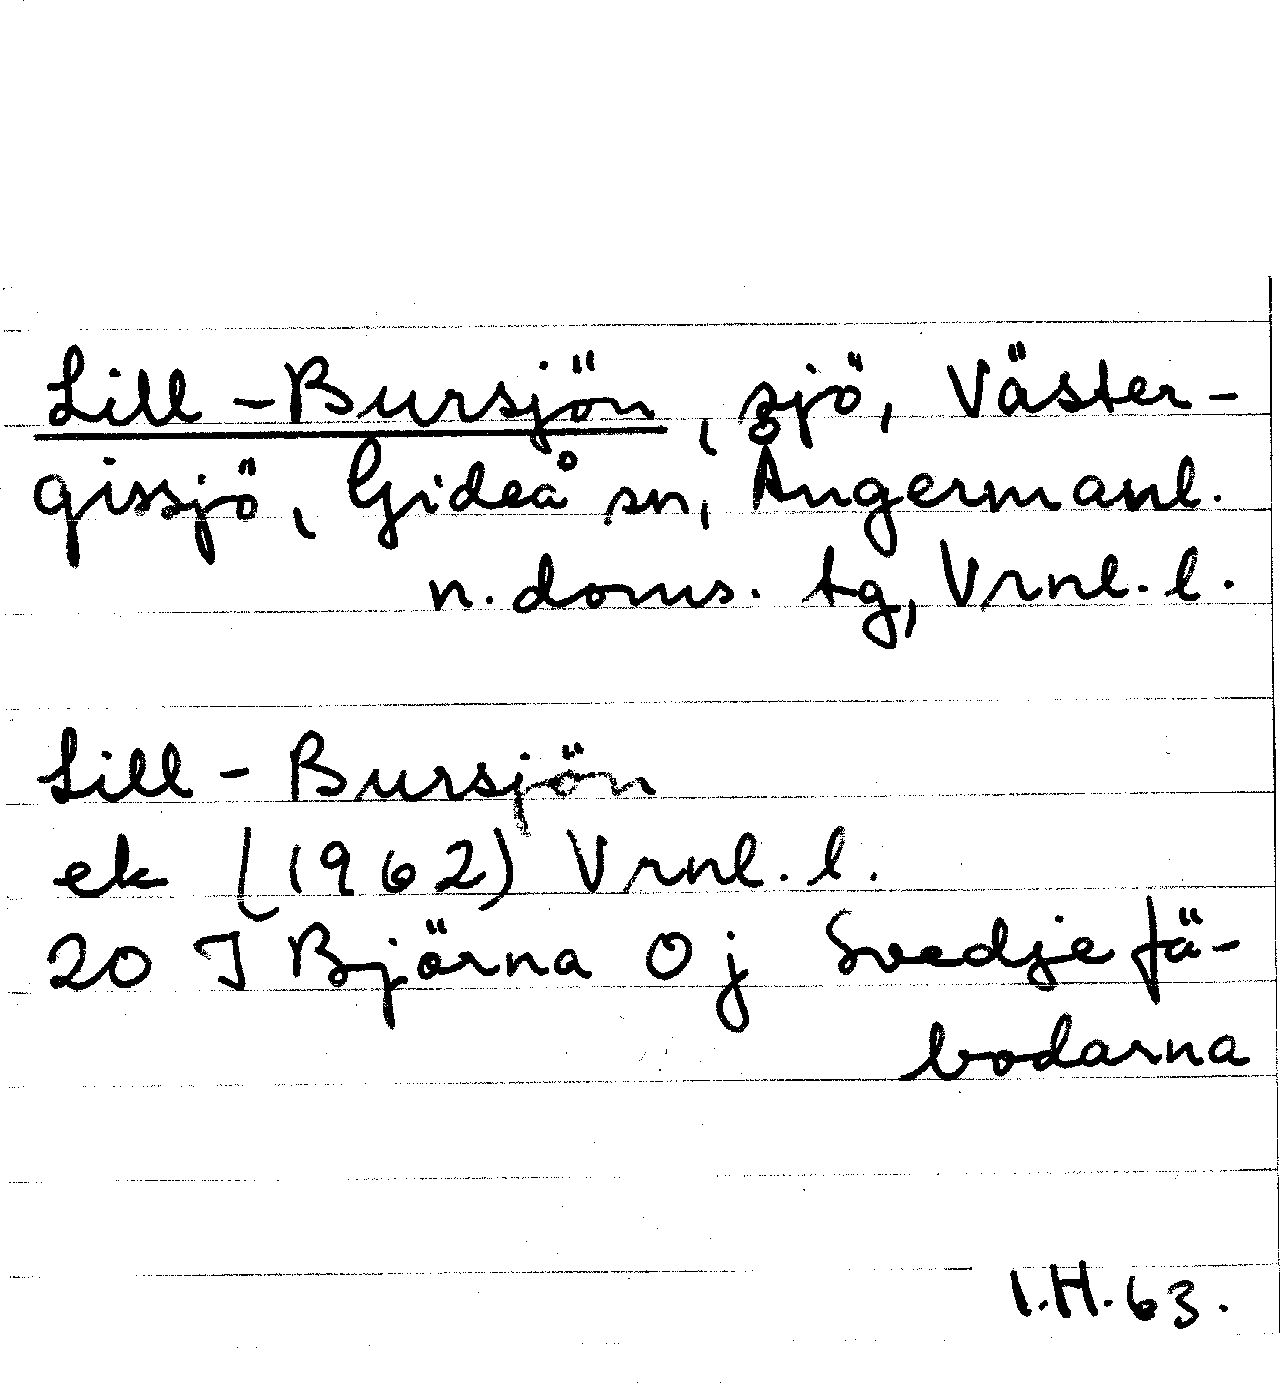 Lill-Bursjön, sjö, Väster-
gissjö, Gideå sn, Ångermanl.
n. doms. tg, Vrnl. l.
Lill-Bursjön
ek (1962) Vrnl. l.
20 I Björna 0 j Svedjefä-
bodarna
I.H. 63.